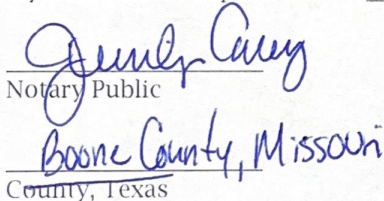 Carey
Notary Public
Boone County, Missouri
County, Texas